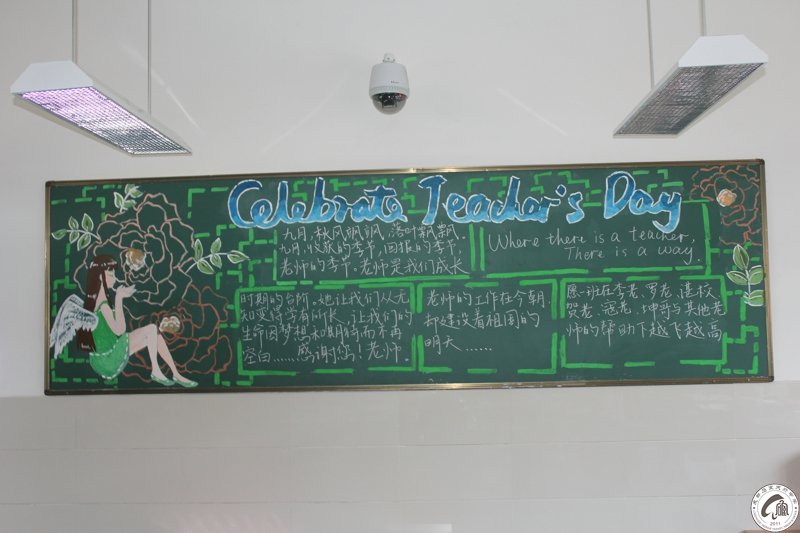 Celebrate Teacher's Day
九月,秋风飒飒,落叶飘飘
九月,收获的季节,回报的季节,
老师的季节.老师是我们成长
Where there is a teacher,
There is a way.
时期的台阶.她让我们从无
知变得学有所长.让我们的
生命因梦想和期待而不再
空白……感谢您!老师.
老师的工作在今朝
却建设着祖国的
明天……
愿一班在李老、罗老、谌校、
贺老、寇老、坤哥与其他老
师的帮助下越飞越高
2011